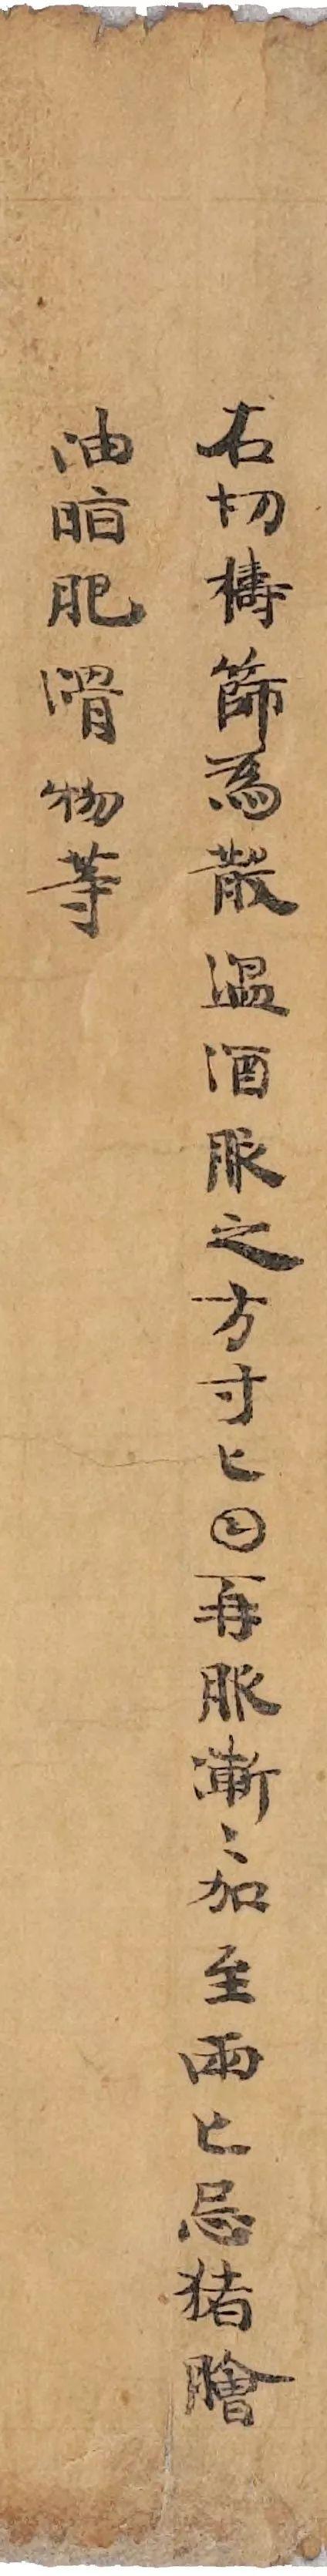 右切檮篩為散温酒服之方寸匕𡆠再服漸〻加至兩匕忌猪膾
油脂肥滑物等